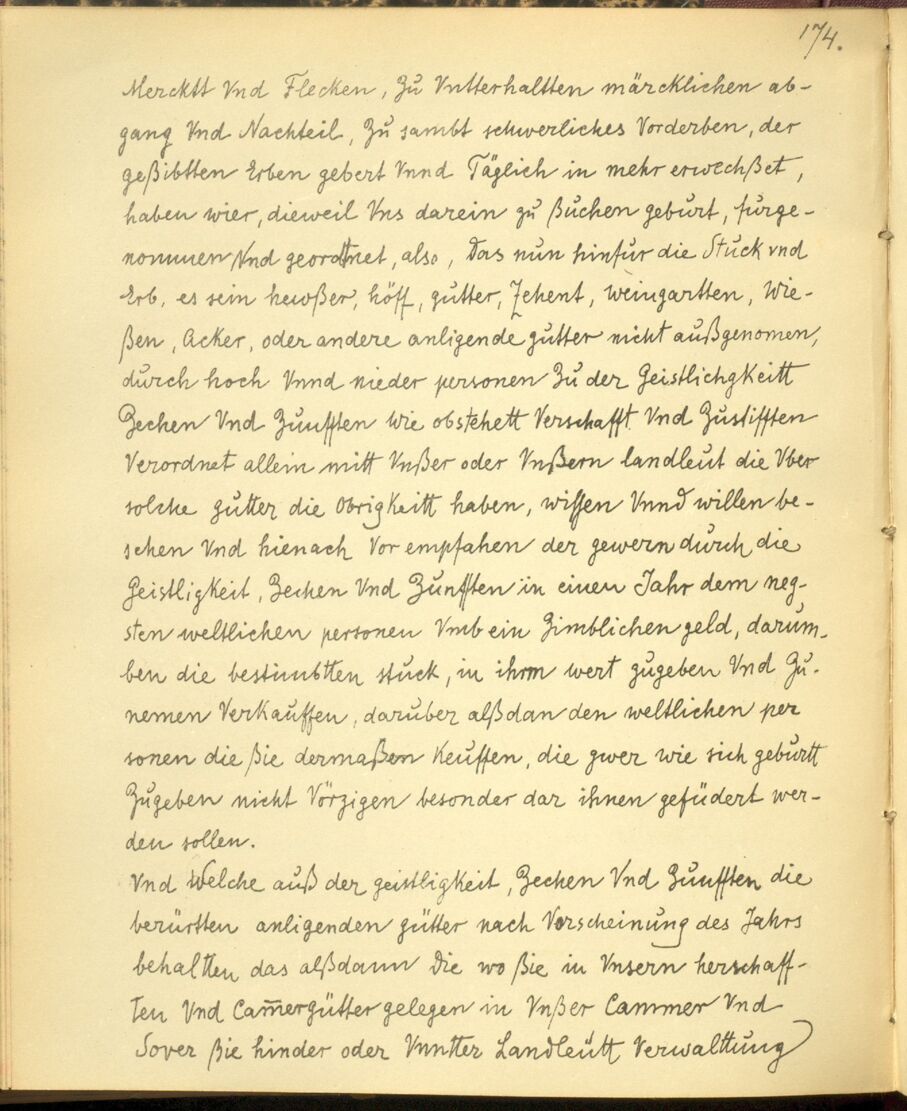 174.
Mercktt Vnd Flecken, Zu Vntterhaltten märcklichen ab-
gang Vnd Nachteil, Zu sambt schwerliches Vorderben, der
geßibtten Erben gebert Vnnd Täglich in mehr erwechßet,
haben wier, dieweil Vns darein zu ßuchen geburt, fürge-
nommen Vnd geordtnet, also, Das nun hinfur die Stuck vnd
Erb, es sein hewßer, höff, gutter, Zehent, weingartten, Wie-
ßen, Acker, oder andere anligende gutter nicht außgenomen,
durch hoch Vnnd nieder personen Zu der Geistlichgkeitt
Zechen Vnd Zunfften Wie obstehett Verschafft Vnd Zustifften
Verordnet allein mitt Vnßer oder Vnßern landleut die Vber
solche gutter die Obrigkeitt haben, wissen Vnnd willen be-
schen Vnd hienach Vor empfahen der gewern durch die
Geistligkeit, Zechen Vnd Zunfften in einen Jahr dem neg-
sten weltlichen personen Vmb ein Zimblichen geld, darum-
ben die bestimbtten stuck, in ihrm wert zugeben Vnd Zu-
nemen Verkauffen, daruber alßdan den weltlichen per
sonen die ßie dermaßen Keuffen, die gwer wie sich geburtt
Zugeben nicht Vörzigen besonder dar ihnen gefüdert wer-
den sollen.
Vnd Welche auß der geistligkeit, Zechen Vnd Zunfften die
berürtten anligenden gütter nach Vorscheinung des Jahrs
behaltten das alßdann Die wo ßie in Vnsern herschaff-
ten Vnd Cam̄ergütter gelegen in Vnßer Cammer Vnd
Sover ßie hinder oder Vnntter Landleutt Verwalttung